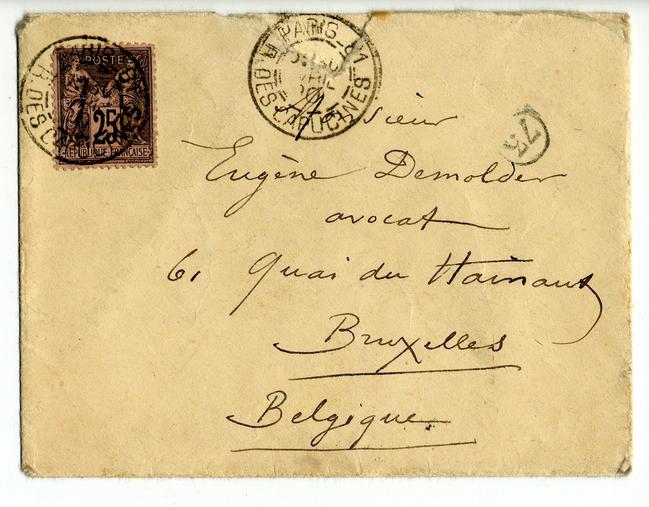 POSTE
25
REPUBLIQUE FRANCAISE
PARIS-81
R. DES CAPUCINES
73
Monsieur
Eugène Demolder
avocat
61 Quai du Hainaut
Bruxelles
Belgique